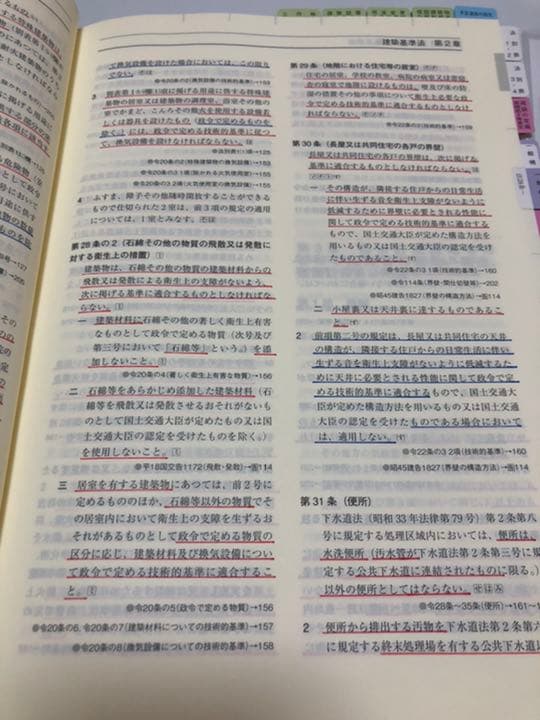 建築基準法 第2章
て換気設備を設けた場合においては、この限り
でない。
3 別表第1(い)欄(1)項に掲げる用途に供する特殊建
築物の居室又は建築物の調理室、浴室その他の
室でかまど、こんろその他火を使用する設備若し
くは器具を設けたもの(政令で定めるものを
除く。)には、政令で定める技術的基準に従つ
て、換気設備を設けなければならない。
4 ふすま、障子その他随時開放することができる
もので仕切られた2室は、前3項の規定の適用
については、1室とみなす。
第28条の2(石綿その他の物質の飛散又は発散に
対する衛生上の措置)
建築物は、石綿その他の物質の建築材料からの
飛散又は発散による衛生上の支障がないよう、
次に掲げる基準に適合するものとしなければな
らない。
一 建築材料に石綿その他の著しく衛生上有害
なものとして政令で定める物質(次号及び
第三号において「石綿等」という。)を添
加しないこと。
●令20条の4(著しく衛生上有害な物質)→156
二 石綿等をあらかじめ添加した建築材料(石
綿等を飛散又は発散させるおそれがないも
のとして国土交通大臣が定めたもの又は国
土交通大臣の認定を受けたものを除く。)
を使用しないこと。
●平18国交告1172(飛散・発散)→告114
三 居室を有する建築物にあつては、前2号に
定めるもののほか、石綿等以外の物質でそ
の居室内において衛生上の支障を生ずるお
それがあるものとして政令で定める物質の
区分に応じ、建築材料及び換気設備につい
て政令で定める技術的基準に適合するこ
と。
●令20条の5(政令で定める物質)→156
●令20条の6、令20条の7(建築材料についての技術的基準)→157
●令20条の8(換気設備についての技術的基準)→158
第29条(地階における住宅等の居室)
住宅の居室、学校の教室、病院の病室又は寄宿
舎の寝室で地階に設けるものは、壁及び床の防
湿の措置その他の事項について衛生上必要な政
令で定める技術的基準に適合するものとしなけ
ればならない。
第30条(長屋又は共同住宅の各戸の界壁)
長屋又は共同住宅の各戸の界壁は、次に掲げる
基準に適合するものとしなければならない。
一 その構造が、隣接する住戸からの日常生活
に伴い生ずる音を衛生上支障がないように
低減するために界壁に必要とされる性能に
関して政令で定める技術的基準に適合する
もので、国土交通大臣が定めた構造方法を
用いるもの又は国土交通大臣の認定を受け
たものであること。
●令22条の3 1項(技術的基準)→160
●令114条(界壁・間仕切壁等)→202
●昭45建告1827(界壁の構造方法)→告114
二 小屋裏又は天井裏に達するものであるこ
と。
2 前項第二号の規定は、長屋又は共同住宅の天井
の構造が、隣接する住戸からの日常生活に伴い
生ずる音を衛生上支障がないように低減するた
めに天井に必要とされる性能に関して政令で定
める技術的基準に適合するもので、国土交通大
臣が定めた構造方法を用いるもの又は国土交通
大臣の認定を受けたものである場合において
は、適用しない。
●令22条の3 2項(技術的基準)→160
●昭45建告1827(界壁の構造方法)→告114
第31条(便所)
下水道法(昭和33年法律第79号)第2条第八
号に規定する処理区域内においては、便所は、
水洗便所(汚水管が下水道法第2条第三号に規
定する公共下水道に連結されたものに限る。)
以外の便所としてはならない。
●令28条~35条(便所)→161~
2 便所から排出する汚物を下水道法第2条第六
に規定する終末処理場を有する公共下水道以